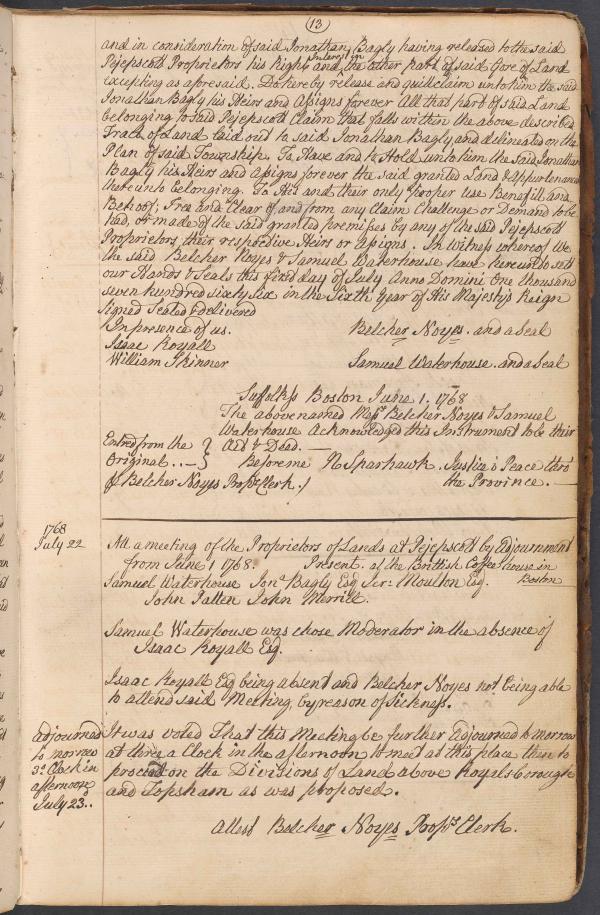 (13)
and in consideration of said Jonathan Bagly having released to the said
Pejepscott Proprietors his Right and Interest in the other part of said Gore of Land
excepting as aforesaid. Do hereby release and quitclaim unto him the said
Jonathan Bagly his Heirs and Assigns forever All that part of said Land
belonging to said Pejepscott Claim that falls within the above described
Tract of Land laid out to said Jonathan Bagly and delineated on the
Plan of said Township. To Have and to Hold unto him the said Jonathan
Bagly his Heirs and Assigns forever the said granted Land & Appurtenances
thereunto belonging. To His and their only proper Use Benefitt and
Behoof; Free and Clear of, and from any Claim Challenge or Demand to be
had, or made of the said granted premisses by any of the said Pejepscott
Proprietors, their respective Heirs or Assigns. In Witness whereof We
the said Belcher Noyes & Samuel Waterhouse have hereunto sett
our Hands & Seals this first day of July Anno Domini One thousand
seven hundred sixty six in the Sixth Year of His Majestys Reign
Signed Sealed & delivered
In presence of us. Belcher Noyes. and a Seal
Isaac Royall
William Skinner Samuel Waterhouse. and a Seal
Suffolk ss Boston June 1. 1768
The above named Messrs Belcher Noyes & Samuel
Waterhouse Acknowledged this Instrument to be their
Act & Deed. —
Entred from the Original ..—}
Before me N Sparhawk. Justice o Peace thro'
the Province. —
p Belcher Noyes Proprs Clerk./
1768
July 22
Att a meeting of the Proprietors of Lands at Pejepscott by Adjournment
from June 1 1768. Present. at the Brittish Coffee house in
Boston
Samuel Waterhouse Jon Bagly Esq Jer: Moulton Esq.
John Patten John Merrill.
Samuel Waterhouse was chose Moderator in the absence of
Isaac Royall Esq.
Isaac Royall Esq being absent and Belcher Noyes not being able
to attend said Meeting, by reason of Sickness.
adjourned
to morrow
3 oClock in
afternoon
July 23..
It was voted That this Meeting be further Adjourned to morrow
at three a Clock in the afternoon to meet at this place then to
proceed on the Divisions of Land above Royalsborough
and Topsham as was proposed.
Attest Belcher Noyes Proprs Clerk.